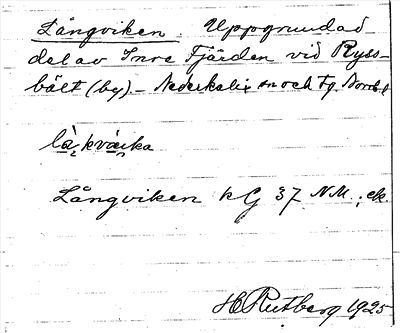 Långviken. Uppgrundad
del av Inre Fjärden vid Ryss-
bält (by). – Nederkalix sn och tg. Norrb. l
Långviken kG 37 NM.; ek.
H Rutberg 1925